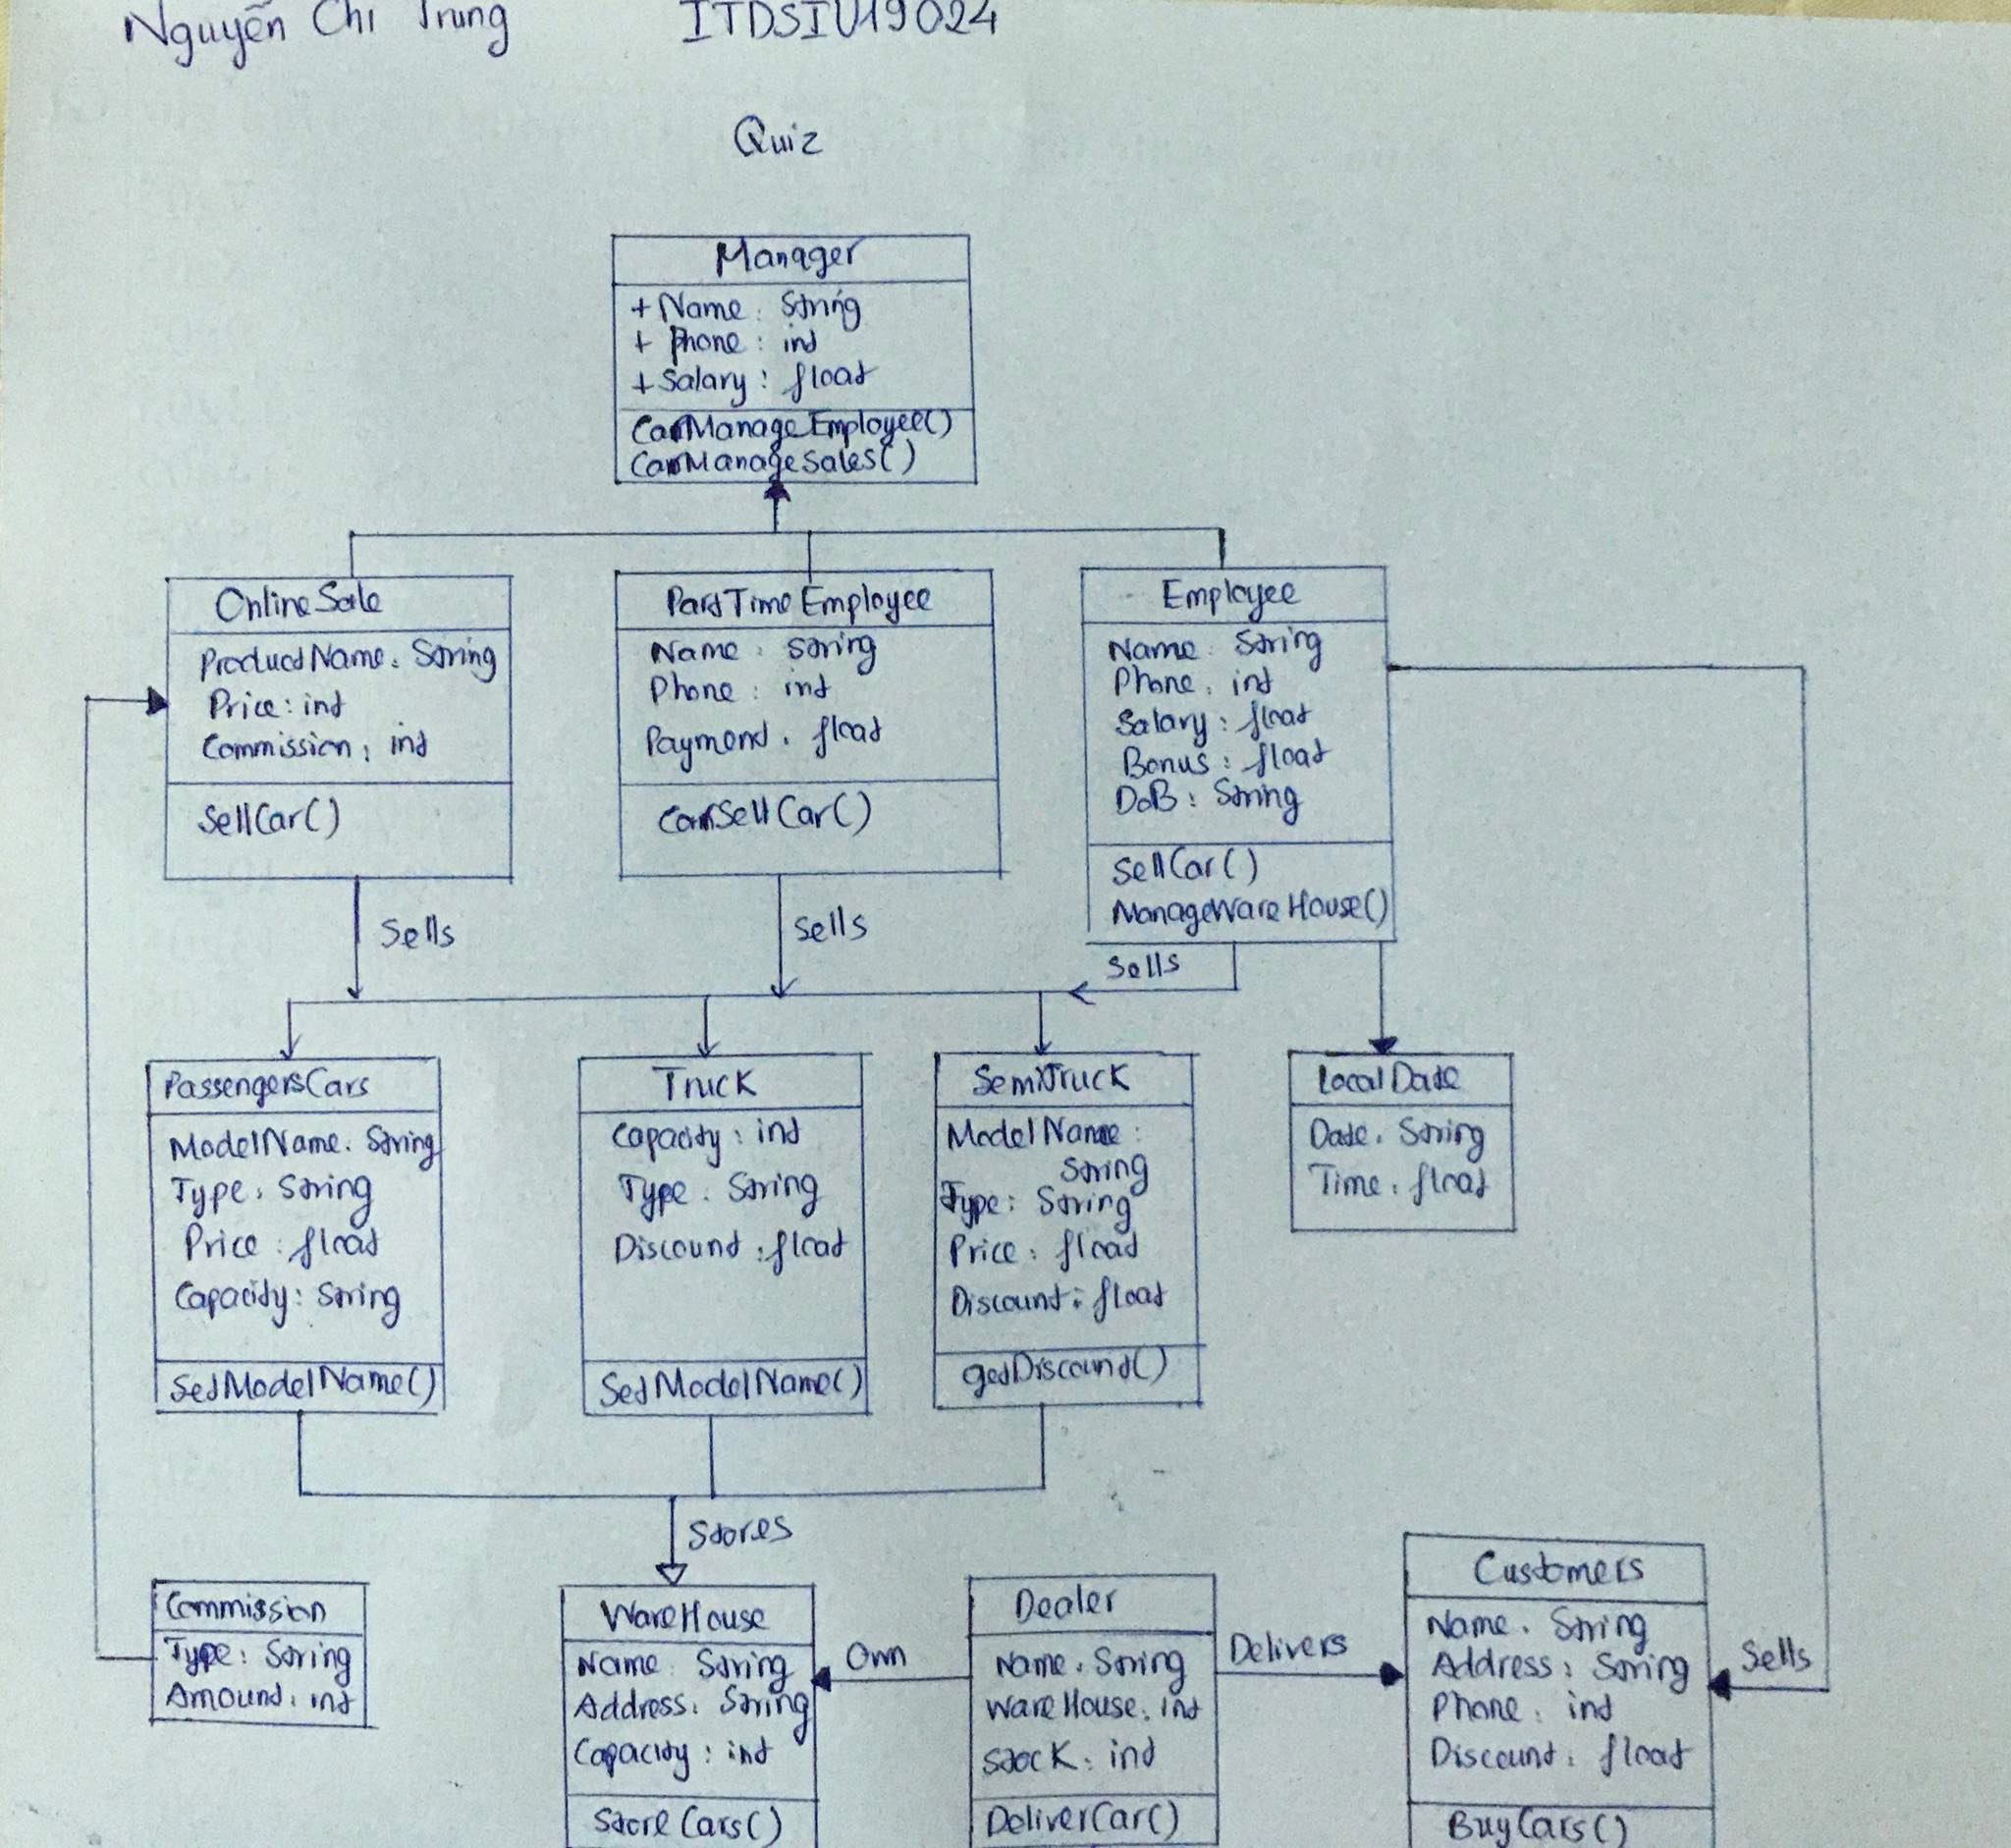 Nguyễn Chí Trung ITDSIU19024
Quiz
Manager
+ Name : String
+ Phone : int
+ Salary : float
CanManageEmployee()
CanManageSales()
OnlineSale
ProductName : String
Price : int
Commission : int
SellCar()
PartTimeEmployee
Name : String
Phone : int
Payment : float
CanSellCar()
Employee
Name : String
Phone : int
Salary : float
Bonus : float
DoB : String
SellCar()
ManageWareHouse()
Sells
Sells
Sells
PassengersCars
ModelName : String
Type : String
Price : float
Capacity : String
SetModelName()
Truck
Capacity : int
Type : String
Discount : float
SetModelName()
SemiTruck
ModelName :
String
Type : String
Price : float
Discount : float
getDiscount()
LocalDate
Date : String
Time : float
Stores
Commission
Type : String
Amount : int
WareHouse
Name : String
Address : String
Capacity : int
Store Cars()
Own
Dealer
Name : String
WareHouse : int
Stock : int
DeliverCar()
Delivers
Customers
Name : String
Address : String
Phone : int
Discount : float
BuyCars()
Sells